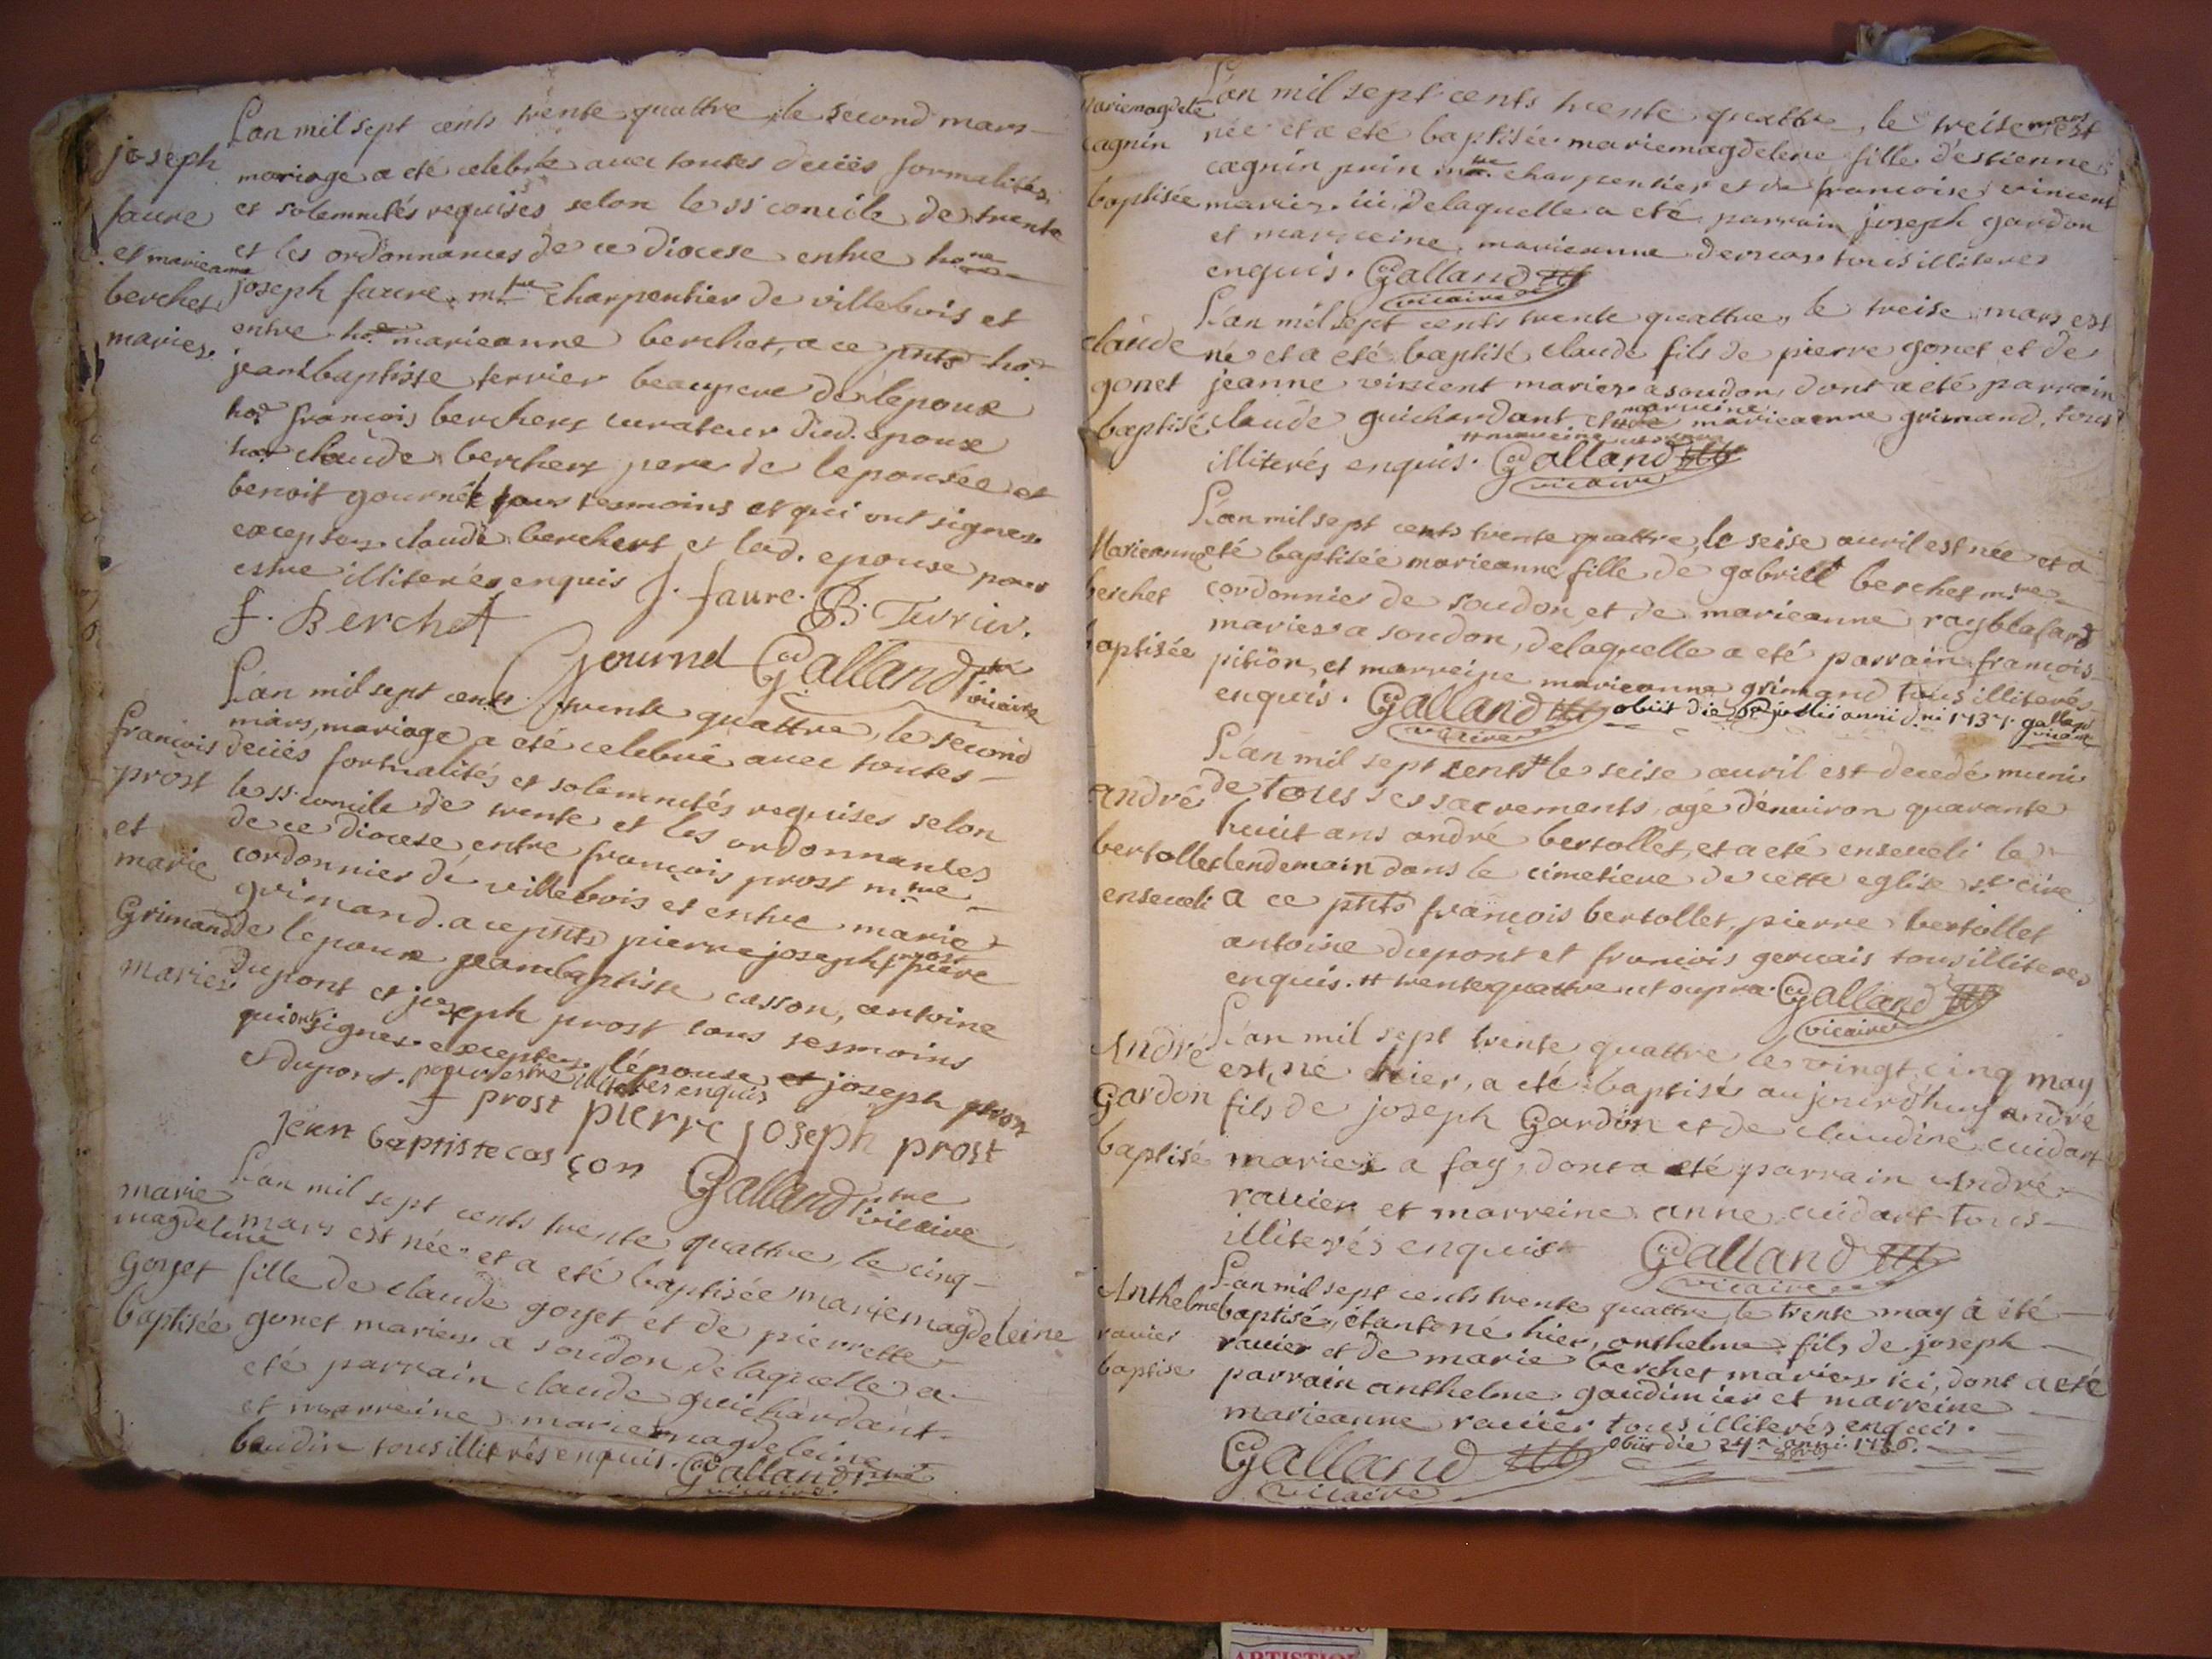 L'an mil sept cents trente quattre, le second mars
joseph
mariage a eté celebré avec toutes deües formalités
faure
et solemnités requises selon le ss concile de trente
et les ordonnances de ce diocese entre ho.ne
et marieanne
joseph faure m.tre charpentier de villebois et
berchet
entre ho.e marieanne berchet, a ce pnts ho.e
mariez.
jeanbaptiste terrier beaupere de l'epoux
ho.e françois berchet curateur dud. epoux
ho.e claude berchet pere de l'epousée et
benoit gournet tous tesmoins et qui ont signez
exceptez claude berchet et lad. epouse pour
estre illiterés enquis J. faure. JB. Terrier.
f. Berchet
Gournd Galland ptre vicaire
L'an mil sept cents trente quattre, le second
mars, mariage a eté celebré avec toutes
françois deües formalités et solemnités requises selon
prost le ss concile de trente et les ordonnances
et de ce diocese entre françois prost m.tre
marie cordonnier de villebois et entre marie
grimand. a ce pnts pierre joseph prost piere
Grimand de l'epoux jeanbaptiste casson, antoine
mariez. dupont et joseph prost tous tesmoins
qui ont signez exceptez l'epouse et joseph prost
et dupont. pour estre illiterés enquis
f prost pierre joseph prost
jean baptiste cas çon Galland ptre vicaire
L'an mil sept cents trente quattre, le cinq
marie magdeleine mars est née et a eté baptisée mariemagdeleine
gonet fille de claude gonet et de pierrette
baptisée gonet mariez a soudon, delaquelle a
eté parrain claude guichardant
et marreine mariemagdeleine
baudin tous illiterés enquis. Galland ptre
vicaire.
L'an mil sept cents trente quattre, le treise mars est
mariemagdele née et a eté baptisée mariemagdelene fille d'estienne
cagnin cagnin prin m.tre charpentier et de francoise vincent
baptisée mariez. ici delaquelle a eté parrain joseph gardon
et marreine marieanne tous illiteres
enquis. Galland
vicaire
L'an mil sept cents trente quattre, le treise mars est
claude né et a eté baptisé claude fils de pierre gonet et de
gonet jeanne vincent mariez a soudon, dont a eté parrain
baptisé claude guichardant et marreine marieanne grimand, tous
illiterés enquis. Galland
vicaire
L'an mil sept cents trente quattre, le seise avril est née et a
Marieanne eté baptisée marieanne fille de gabriel berchet m.tre
berchet cordonnier de soudon, et de marieanne rayblafard
mariez a soudon, delaquelle a eté parrain françois
baptisée pition, et marreine marieanne grimand tous illiterés
enquis. Galland obiit die julii anni d.ni 1737. galland
vicaire
L'an mil sept cents # le seise avril est decedé muni
andré de tous ses sacrements, agé d'environ quarante
huit ans andré bertollet, et a eté enseveli le
bertollet lendemain dans le cimetiere de cette eglise
enseveli a ce pnts françois bertollet, pierre bertollet
antoine dupont et françois gervais tous illiteres
enquis. # trente quattre ut supra. Galland
vicaire
L'an mil sept trente quattre le vingt cinq may
André est né hier, a eté baptisé aujourd'huy andré
gardon fils de joseph Gardon et de claudine cuidart
baptisé mariez a fay, dont a eté parrain andré
ravier et marreine anne cuidart tous
illiterés enquis Galland
vicaire
L'an mil sept cents trente quattre, le trente may a été
Anthelme baptisé, étant né hier, anthelme fils de joseph
ravier ravier et de marie berchet mariez ici, dont a eté
baptisé parrain anthelme gaudimier et marreine
marieanne ravier tous illiterés enquis.
Galland obiit die 24.a 1736.
vicaire